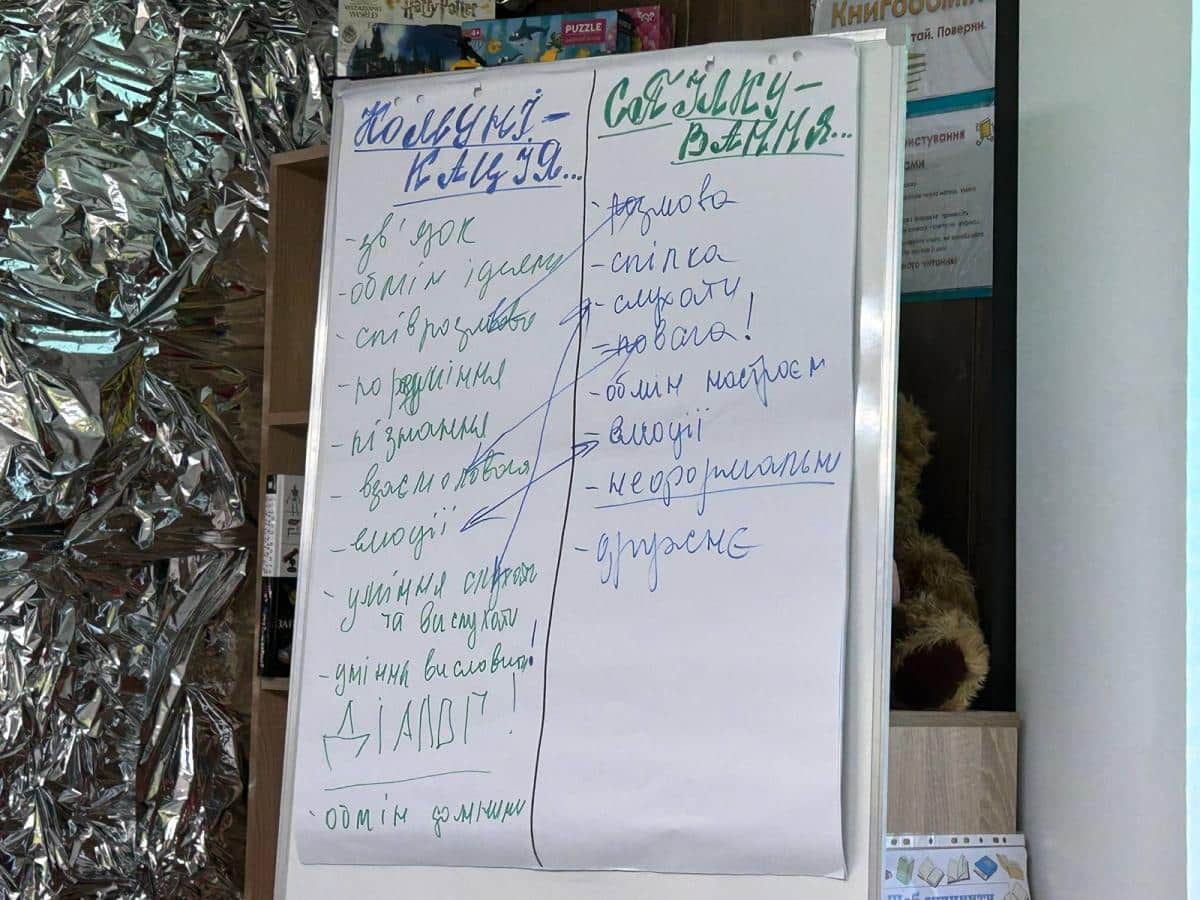 WIZARDING WORLD
Harry Potter
4+
PUZZLE
КНИГООБМІН
тай. Поверни.
ристування
ами
КОМУНІ-
КАЦІЯ...
- зв'язок
- обмін ідеями
- співрозмова
- порозуміння
- пізнання
- взаємоповага
- емоції
- уміння слухати
та вислухати
- уміння висловити!
ДІАЛОГ!
- обмін думками
СПІЛКУ-
ВАННЯ...
- розмова
- спілка
- слухати
- повага!
- обмін настроєм
- емоції
- неформальне
- дружнє